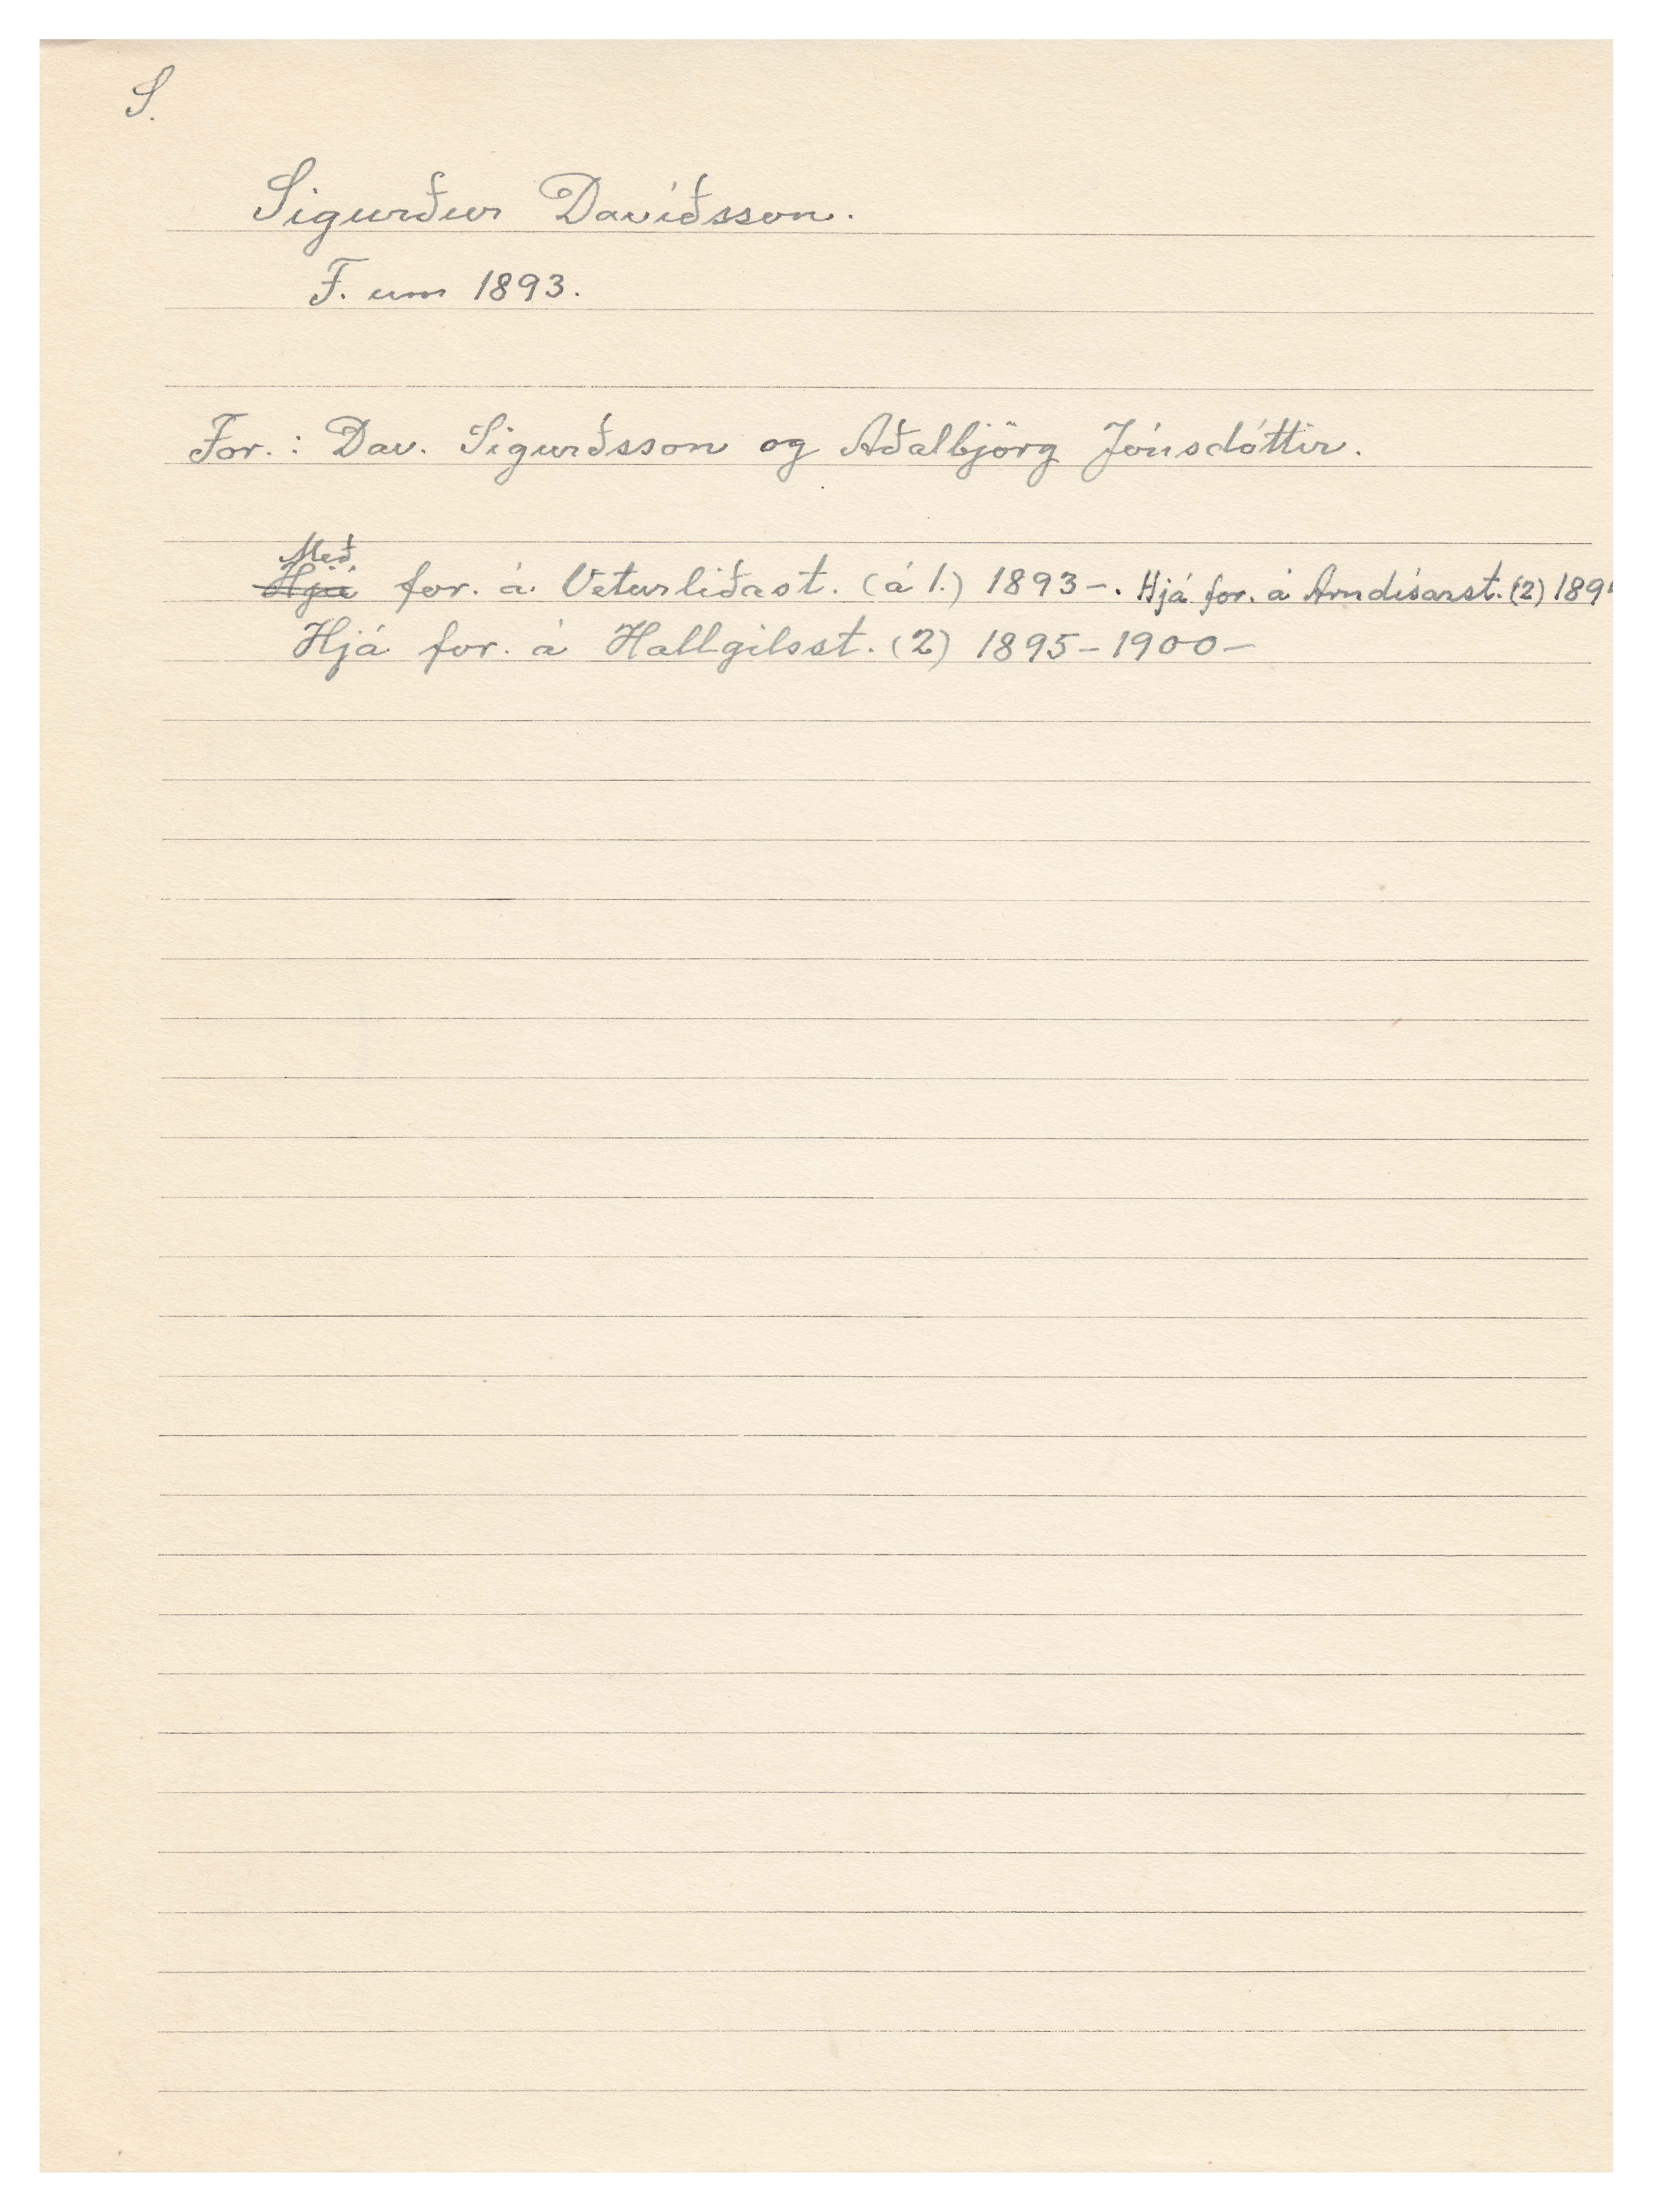 S.
Sigurður Davíðsson.
F. um 1893.
For.: Dav. Sigurðsson og Aðalbjörg Jónsdóttir.
Með
Hjá for. á Veturliðast. (á 1.) 1893-. Hjá for. á Arndísarst. (2) 189
Hjá for. á Hallgilsst. (2) 1895-1900-